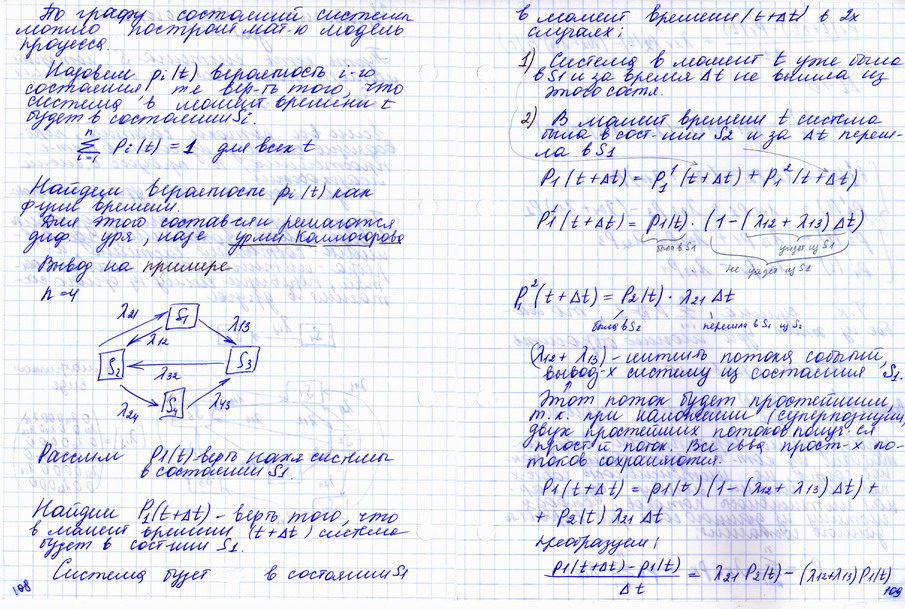 По графу состояний системы
можно построит мат-ю модель
процесса.
Назовем pi(t) вероятность i-го
состояния, т.е вер-ть того, что
система в момент времени t
будет в состоянии Si.
n
∑ Pi(t) = 1 для всех t
i=1
Найдем вероятности pi(t) как
функ времени.
Для этого состав-ся и решаются
диф ур-я, назе ур-ми Колмогорова
Вывод на примере
n=4
λ21 S1 λ13
λ12
S2 S3
λ32
λ24 S4 λ43
Рассмим P1(t)-верть нахя системы
в состоянии S1.
Найдем P1(t+Δt) - верть того, что
в момент времени (t+Δt) система
будет в сост-нии S1.
Система будет в состоянии S1
108
в момент времени (t+Δt) в 2х
случаях:
1) Система в момент t уже была
в S1 и за время Δt не вышла из
этого состя.
2) В момент времени t система
была в сост-нии S2 и за Δt переш-
ла в S1
P1(t+Δt) = P1¹(t+Δt) + P1²(t+Δt)
P1¹(t+Δt) = p1(t) · (1-(λ12+λ13)Δt)
была в S1 уйдет из S1
не уйдет из S1
P1²(t+Δt) = P2(t) · λ21 Δt
была в S2 перешла в S1 из S2
(λ12+λ13) - потока событий,
вывод-х систему из состояния S1.
Этот поток будет простейшим,
т.к. при наложении (суперпозиции)
двух простейших потоков получ-ся
прост-й поток. Все св-ва прост-х по-
токов сохраняются.
P1(t+Δt) = p1(t)(1-(λ12+λ13)Δt) +
+ P2(t) λ21 Δt
Преобразуем:
p1(t+Δt) - p1(t)
――― = λ21 P2(t) - (λ12+λ13)P1(t)
Δt
109